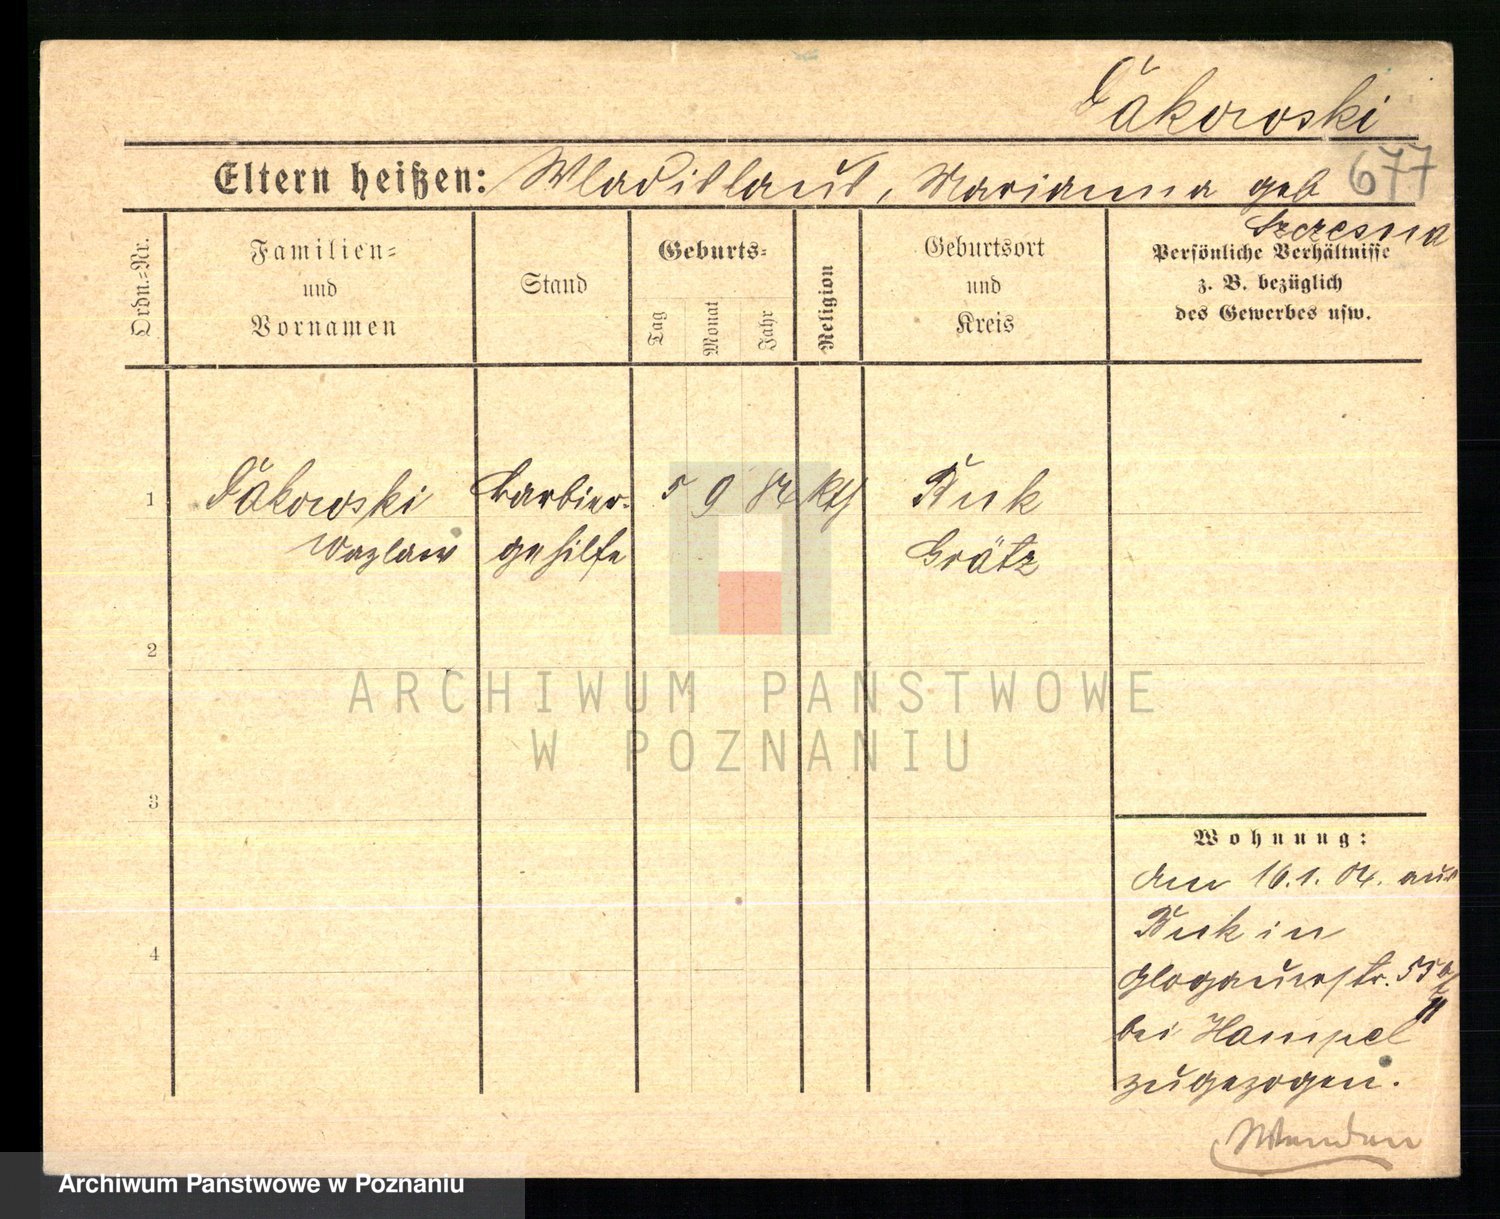 Cakowski
Eltern heißen: Wladislaus, Marianna geb
677
Szczesna
Ordn.=Nr.
Familien=
und
Vornamen
Stand
Geburts=
Tag
Monat
Jahr
Religion
Geburtsort
und
Kreis
Persönliche Verhältnisse
z. B. bezüglich
des Gewerbes usw.
1 Cakowski Barbier- 5 9 kth Buk
Wazlaw gehilfe Grätz
2
3
4
Wohnung:
den 16.1.04. aus
Buk in
Glogauerstr.
bei Hampel
zugezogen.
ARCHIWUM PAŃSTWOWE
W POZNANIU
Archiwum Państwowe w Poznaniu